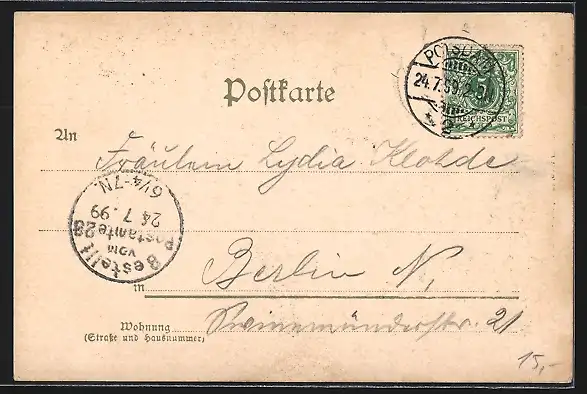 Postkarte
POTSDAM
24.7.99
5
REICHSPOST
An
Fräulein Lydia
6¼-7N.
24 7. 99
Bestellt
vom
Postamte 28
in Berlin N,
Wohnung
(Straße und Hausnummer)
Swinemünderstr. 21
15,-